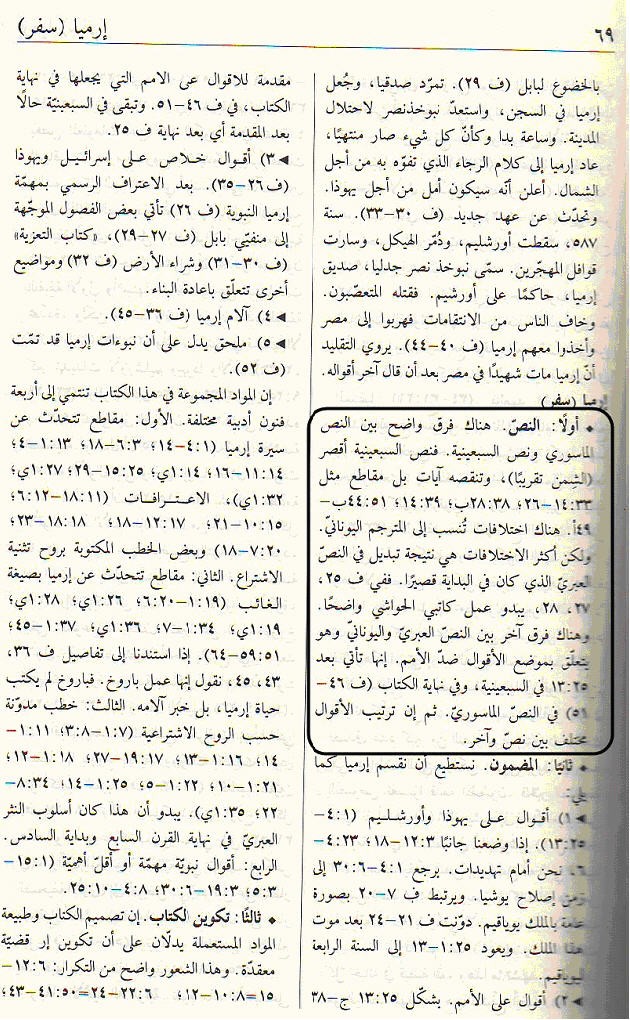 ٦٩
إرميا (سفر)
بالخضوع لبابل (ف ٢٩). تمرّد صدقيا، وجُعل
إرميا في السجن، واستعدّ نبوخذنصر لاحتلال
المدينة. وساعة بدا وكأنّ كل شيء صار منتهيًا،
عاد إرميا إلى كلام الرجاء الذي تفوّه به من أجل
الشمال. أعلن أنّه سيكون أمل من أجل يهوذا.
وتحدّث عن عهد جديد (ف ٣٠-٣٣). سنة
٥٨٧، سقطت أورشليم، ودُمّر الهيكل، وسارت
قوافل المهجّرين. سمّى نبوخذ نصر جدليا، صديق
إرميا، حاكمًا على أورشيم. فقتله المتعصّبون.
وخاف الناس من الانتقامات فهربوا إلى مصر
وأخذوا معهم إرميا (ف ٤٠-٤٤). يروي التقليد
أنّ إرميا مات شهيدًا في مصر بعد أن قال آخر أقواله.
إرميا (سفر)
• أولًا: النصّ. هناك فرق واضح بين النص
الماسوري ونص السبعينية. فنص السبعينية أقصر
(الثمن تقريبًا)، وتنقصه آيات بل مقاطع مثل
٣٣:١٤-٢٦؛ ٣٨:٢٨ب؛ ٣٩:١٤؛ ٥١:٤٤ب-
٤٩أ. هناك اختلافات تُنسب إلى المترجم اليونانيّ.
ولكن أكثر الاختلافات هي نتيجة تبديل في النصّ
العبريّ الذي كان في البداية قصيرًا. ففي ف ٢٥،
٢٧، ٢٨، يبدو عمل كاتبي الحواشي واضحًا.
وهناك فرق آخر بين النصّ العبريّ واليونانيّ وهو
يتعلّق بموضع الأقوال ضدّ الأمم. إنها تأتي بعد
١٣:٢٥ في السبعينية، وفي نهاية الكتاب (ف ٤٦-
٥١) في النصّ الماسوريّ. ثم إن ترتيب الأقوال
مختلف بين نصّ وآخر.
• ثانيًا: المضمون. نستطيع أن نقسم إرميا كما
يلي:
◄١) أقوال على يهوذا وأورشليم (١:٤-
١٣:٢٥). إذا وضعنا جانبًا ١٢:٣-١٨؛ ٢٣:٤-
٦، نحن أمام تهديدات. يرجع ١:٤-٣٠:٦ إلى
زمن إصلاح يوشيا. ويرتبط ف ٧-٢٠ بصورة
خاصة بالملك يوياقيم. دوّنت ف ٢١-٢٤ بعد موت
هذا الملك. ويعود ١:٢٥-١٣ إلى السنة الرابعة
ليوياقيم.
◄٢) أقوال على الأمم. بشكّل ١٣:٢٥ ج-٣٨
مقدمة للاقوال عى الامم التي يجعلها في نهاية
الكتاب، في ف ٤٦-٥١. وتبقى في السبعينيّة حالًا
بعد المقدمة أي بعد نهاية ف ٢٥.
◄٣) أقوال خلاص على إسرائيل ويهوذا
(ف ٢٦-٣٥). بعد الاعتراف الرسمي بمهمّة
إرميا النبوية (ف ٢٦) تأتي بعض الفصول الموجّهة
إلى منفيّي بابل (ف ٢٧-٢٩)، «كتاب التعزية»
(ف ٣٠-٣١) وشراء الأرض (ف ٣٢) ومواضيع
أخرى تتعلّق باعادة البناء.
◄٤) آلام إرميا (ف ٣٦-٤٥).
◄٥) ملحق يدل على أن نبوءات إرميا قد تمّت
(ف ٥٢).
إن المواد المجموعة في هذا الكتاب تنتمي إلى أربعة
فنون أدبية مختلفة. الأول: مقاطع تتحدّث عن
سيرة إرميا (٤:١-١٤؛ ٣:٦-١٨؛ ١:١٣-٤؛
١١:١٤-١٦؛ ١:١٤ي؛ ١٥:٢٥-٢٩؛ ١:٢٧ي؛
١:٣٢ي)، الاعترافات (١٨:١١-٦:١٢؛
١٠:١٥-٢١؛ ١٢:١٧-١٨؛ ١٨:١٨-٢٣؛
٧:٢٠-١٨) وبعض الخطب المكتوبة بروح تثنية
الاشتراع. الثاني: مقاطع تتحدّث عن إرميا بصيغة
الغائب (١:١٩-٦:٢٠؛ ١:٢٦ي؛ ١:٢٨ي؛
١:١٩ي؛ ١:٣٤-٧؛ ١:٣٦ي؛ ١:٣٧-٤٥؛
٥٩:٥١-٦٤). إذا استندنا إلى تفاصيل ف ٣٦،
٤٣، ٤٥، نقول إنها عمل باروخ. فباروخ لم يكتب
حياة إرميا، بل خبر آلامه. الثالث: خطب مدوّنة
حسب الروح الاشتراعية (١:٧-٣:٨؛ ١:١١-
١٤؛ ١:١٦-١٣؛ ١٩:١٧-٢٧؛ ١:١٨-١٢؛
١:٢١-١٠؛ ١:٢٢-٥؛ ١:٢٥-١٤؛ ٨:٣٤-
٢٢؛ ١:٣٥ي). يبدو أن هذا كان أسلوب النثر
العبريّ في نهاية القرن السابع وبداية السادس.
الرابع: أقوال نبويّة مهمّة أو أقلّ أهميّة (١:١٥-
٥:٣؛ ١٩:٣-٣٠:٦؛ ٤:٨-٢٥:١٠.
• ثالثًا: تكوين الكتاب. إن تصميم الكتاب وطبيعة
المواد المستعملة يدلّان على أن تكوين إر قضيّة
معقدّة. وهذا الشعور واضح من التكرار: ١٢:٦-
١٥=١٠:٨-١٢؛ ٢٢:٦-٢٤=٤١:٥٠-٤٣؛